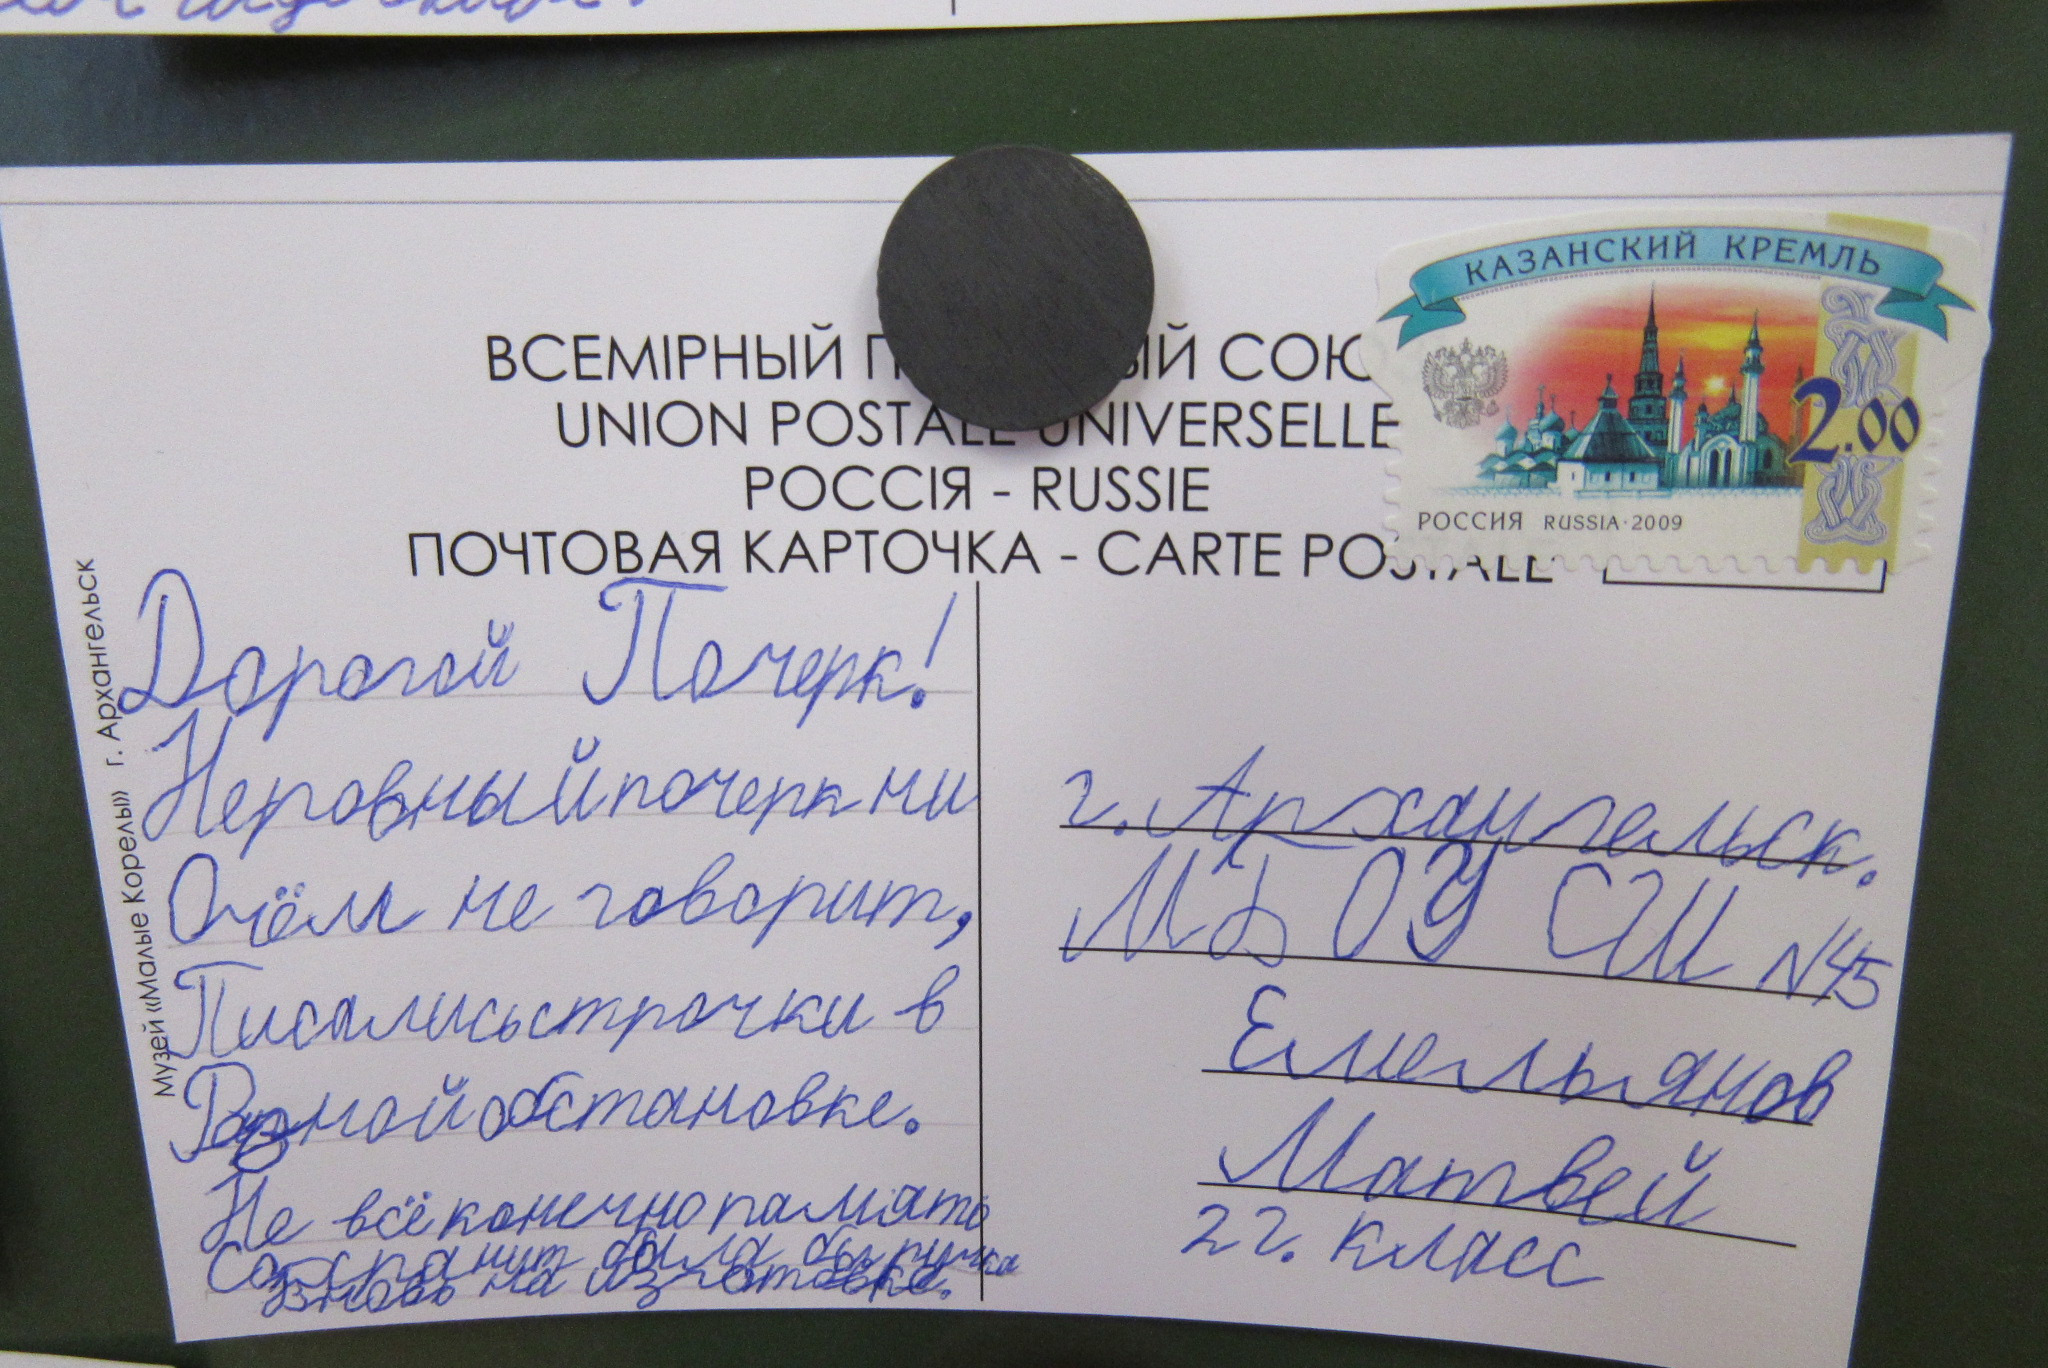 КАЗАНСКИЙ КРЕМЛЬ
2.00
РОССИЯ RUSSIA·2009
ВСЕМІРНЫЙ П ЫЙ СОЮ
UNION POSTALE UNIVERSELLE
РОССІЯ - RUSSIE
ПОЧТОВАЯ КАРТОЧКА - CARTE POSTALE
Музей «Малые Корелы» г. Архангельск
Дорогой Почерк!
Неровный почерк ни
О чём не говорит,
Писались строчки в
Разной обстановке.
Не всё конечно память
Сохранит была бы ручка
Вновь на изготовке.
г. Архангельск.
МБОУ СШ N45
Емельянов
Матвей
2 г. класс